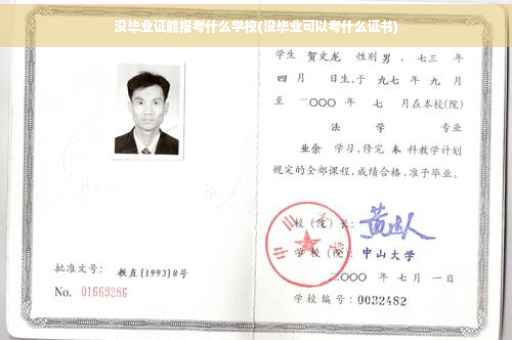 没毕业证能报考什么学校(没毕业可以考什么证书)
学生 贺文龙 性别 男 、七三 年
四 月 日生,于 九七 年 九 月
至 二〇〇〇 年 七 月在本校(院)
法 学 专业
业余 学习,修完 本 科教学计划
规定的全部课程,成绩合格,准予毕业。
校(院)长:
学校(院): 中山大学
二〇〇〇 年 七月 一日
学校编号: 0032482
批准文号: 教直[1993]8号
No. 01663286